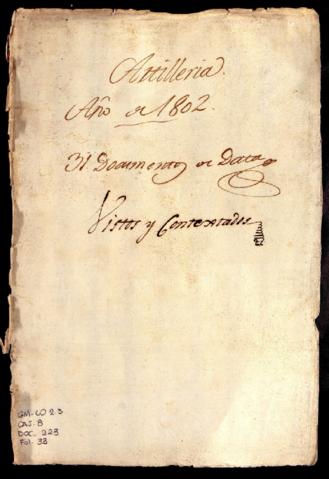 Artilleria.
Año de 1802.
31. Documentos de Data
Vistos y Contextados
GM-CO 23
CAJ. 8
DOC. 223
Fol. 38